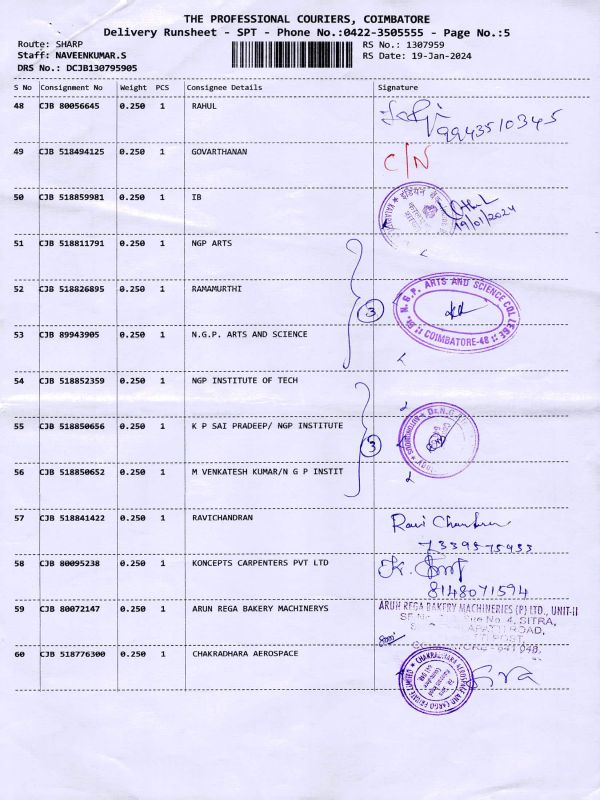 THE PROFESSIONAL COURIERS, COIMBATORE
Delivery Runsheet - SPT - Phone No.:0422-3505555 - Page No.:5
Route: SHARP RS No.: 1307959
Staff: NAVEENKUMAR.S RS Date: 19-Jan-2024
DRS No.: DCJB130795905
S No Consignment No Weight PCS Consignee Details Signature
48 CJB 80056645 0.250 1 RAHUL
9943510345
49 CJB 518494125 0.250 1 GOVARTHANAN C/N
50 CJB 518859981 0.250 1 IB
19/01/2024
51 CJB 518811791 0.250 1 NGP ARTS
52 CJB 518826895 0.250 1 RAMAMURTHI
3
Dr. N.G.P. ARTS AND SCIENCE COLLEGE
COIMBATORE-48
53 CJB 89943905 0.250 1 N.G.P. ARTS AND SCIENCE
54 CJB 518852359 0.250 1 NGP INSTITUTE OF TECH
55 CJB 518850656 0.250 1 K P SAI PRADEEP/ NGP INSTITUTE
3
56 CJB 518850652 0.250 1 M VENKATESH KUMAR/N G P INSTIT
57 CJB 518841422 0.250 1 RAVICHANDRAN Ravi Chandran
7339575933
58 CJB 80095238 0.250 1 KONCEPTS CARPENTERS PVT LTD
8148071594
59 CJB 80072147 0.250 1 ARUN REGA BAKERY MACHINERYS
ARUN REGA BAKERY MACHINERIES (P) LTD., UNIT-II
No. 4, SITRA,
ROAD,
POST
COIMBATORE - 641 048.
60 CJB 518776300 0.250 1 CHAKRADHARA AEROSPACE
CHAKRADHARA AEROSPACE AND CARGO PRIVATE LIMITED